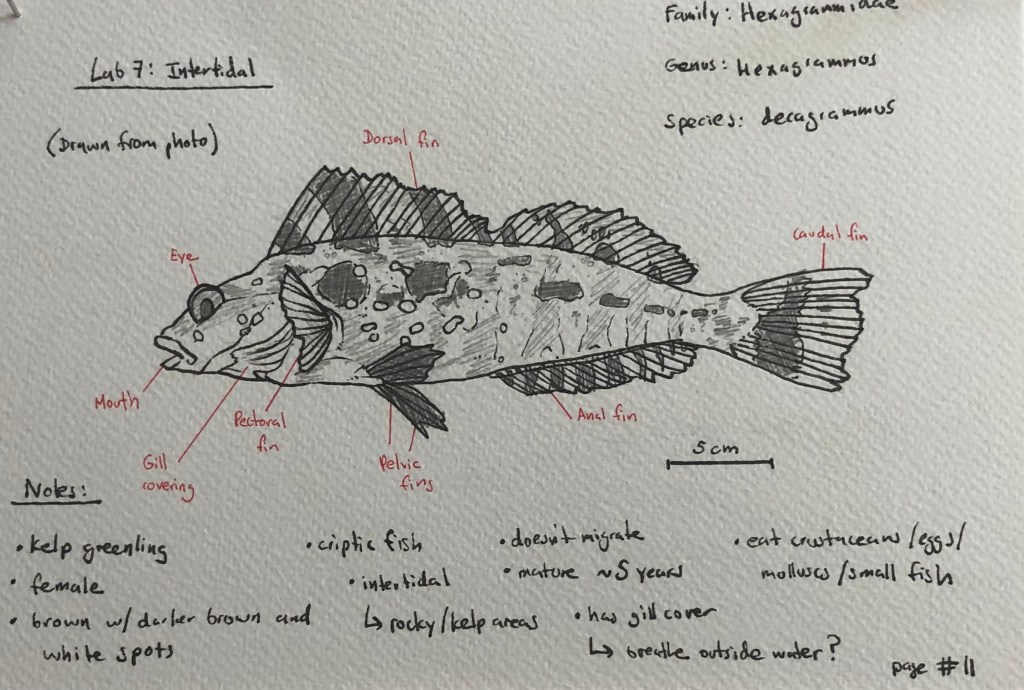 Family: Hexagrammidae
Lab 7: Intertidal
Genus: Hexagrammos
Species: decagrammus
(Drawn from photo)
Dorsal fin
Caudal fin
Eye
Mouth
Pectoral
fin
Anal fin
Gill
covering
Pelvic
fins
5 cm
Notes:
• kelp greenling
• female
• brown w/ darker brown and
white spots
• criptic fish
• intertidal
↳ rocky/kelp areas
• doesn't migrate
• mature ~5 years
• has gill cover
↳ breathe outside water?
• eat crustaceans/eggs/
molluscs/small fish
page #11